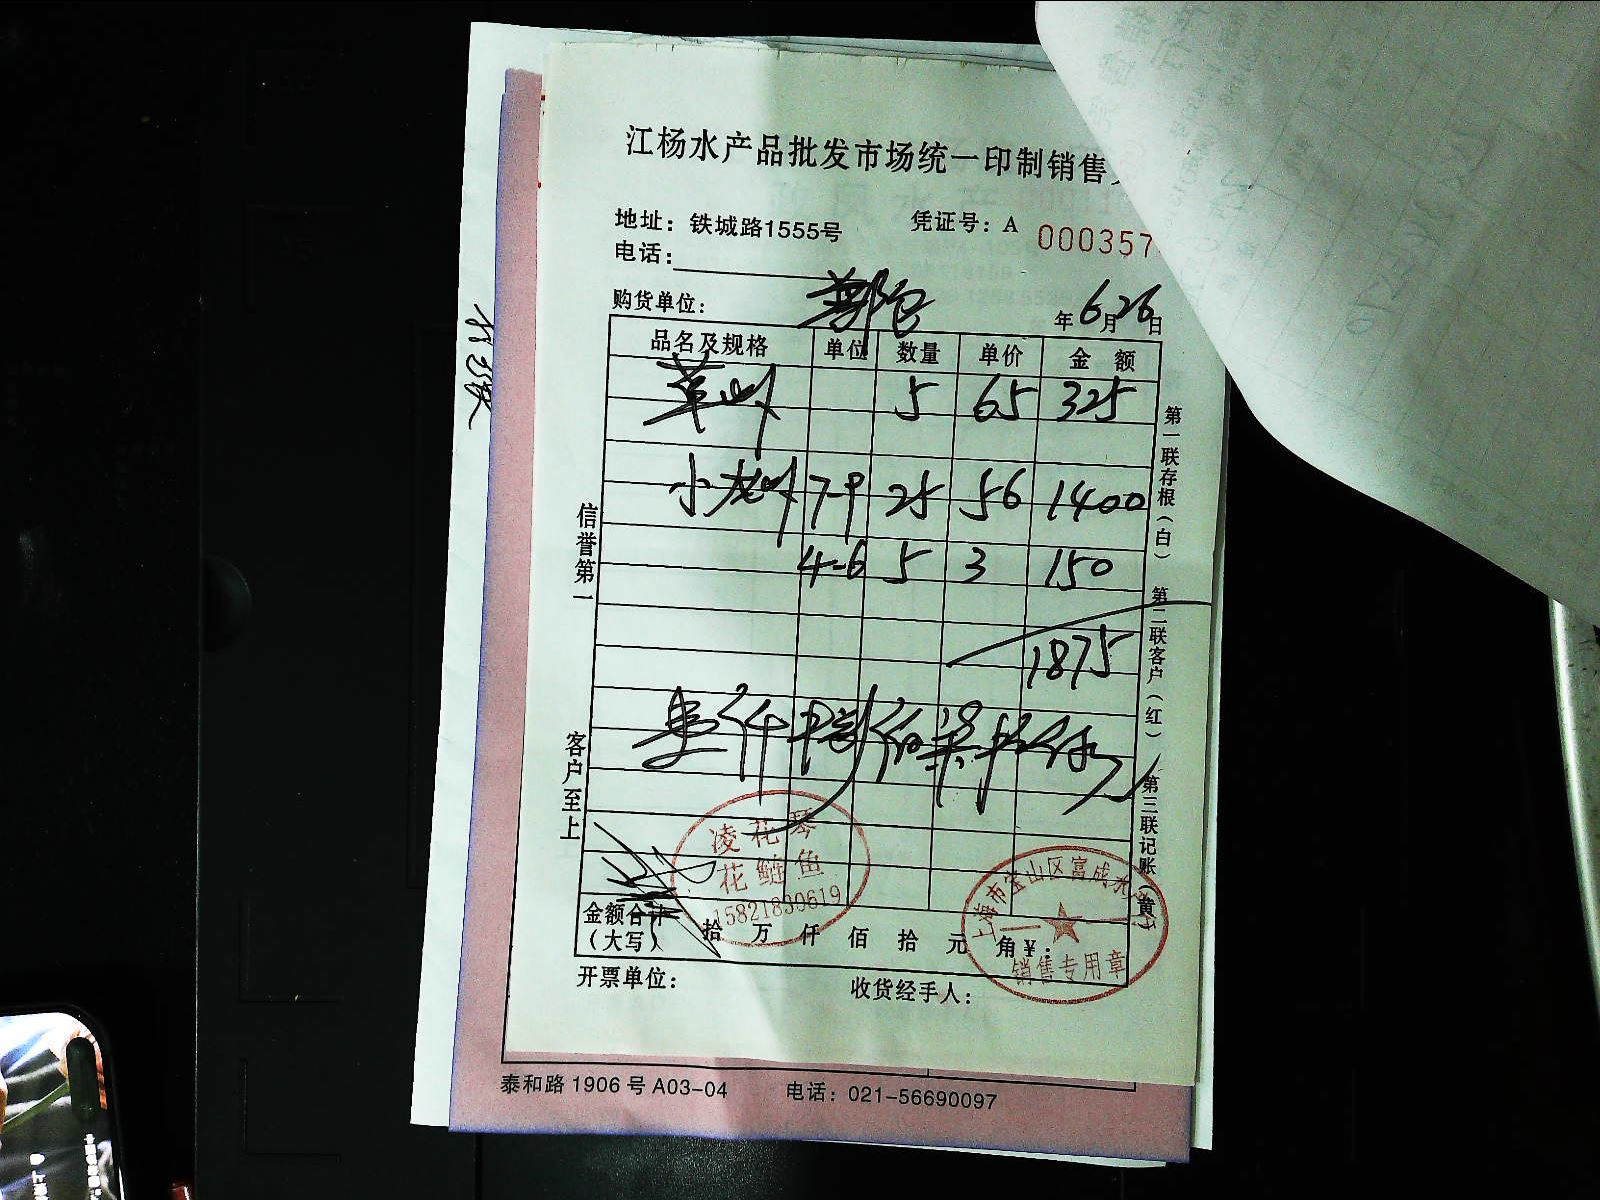 江杨水产品批发市场统一印制销售
地址：铁城路1555号 凭证号：A 000357
电话：
购货单位： 年6月26日
品名及规格 单位 数量 单价 金 额
草虾 5 65 325
小龙虾 7-9 25 56 1400
4-6 5 3 150
1875
信誉第一
客户至上
第一联存根（白）
第二联客户（红）
第三联记账（黄）
凌花琴
花鲢鱼
15821830619
上海市宝山区富成水
销售专用章
金额合计
（大写） 拾 万 仟 佰 拾 元 角 ¥：
开票单位： 收货经手人：
泰和路 1906 号 A03-04 电话：021-56690097